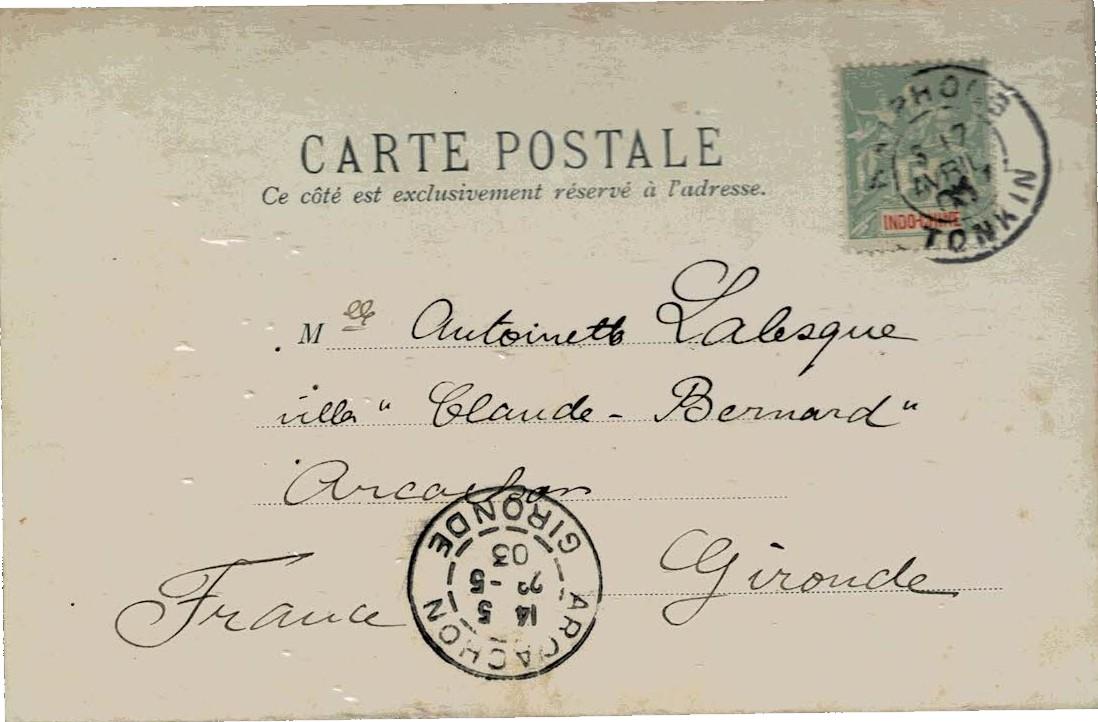 CARTE POSTALE
Ce côté est exclusivement réservé à l'adresse.
INDO-CHINE
TONKIN
AVRIL
Mlle Antoinette Lalesque
villa "Claude-Bernard"
Arcachon
Gironde
France
ARCACHON
GIRONDE
14 5
03